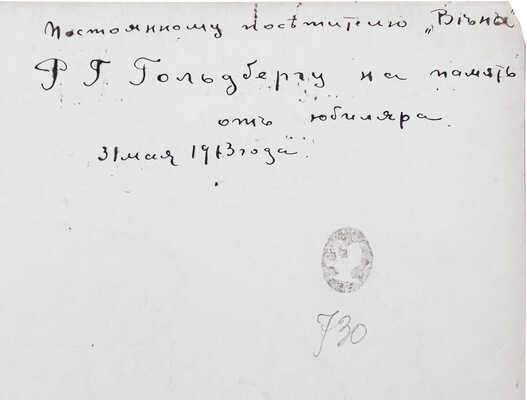 Постоянному посѣтителю „Вѣна
Р Г Гольдбергу на память
отъ юбиляра.
31 мая 1913 года.
730